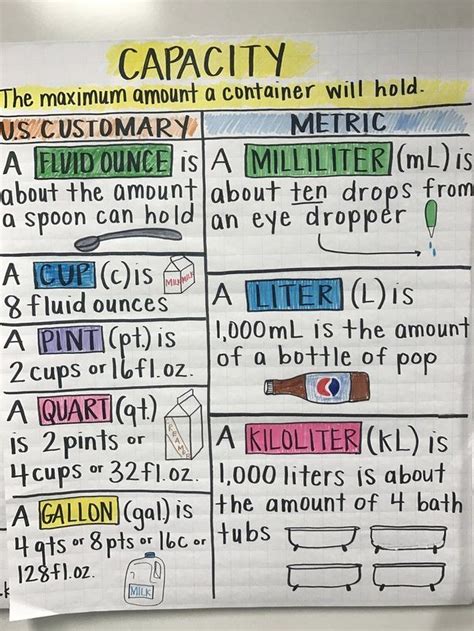 CAPACITY
The maximum amount a container will hold.
U.S. CUSTOMARY
A FLUID OUNCE is
about the amount
a spoon can hold
A CUP (c) is
8 fluid ounces
MILK
A PINT (pt.) is
2 cups or 16fl.oz.
A QUART (qt.)
is 2 pints or
4 cups or 32fl.oz.
A GALLON (gal) is
4 qts or 8pts or 16c or
128fl.oz.
MILK
METRIC
A MILLILITER (mL) is
about ten drops from
an eye dropper
A LITER (L) is
1,000mL is the amount
of a bottle of pop
A KILOLITER (kL) is
1,000 liters is about
the amount of 4 bath
tubs